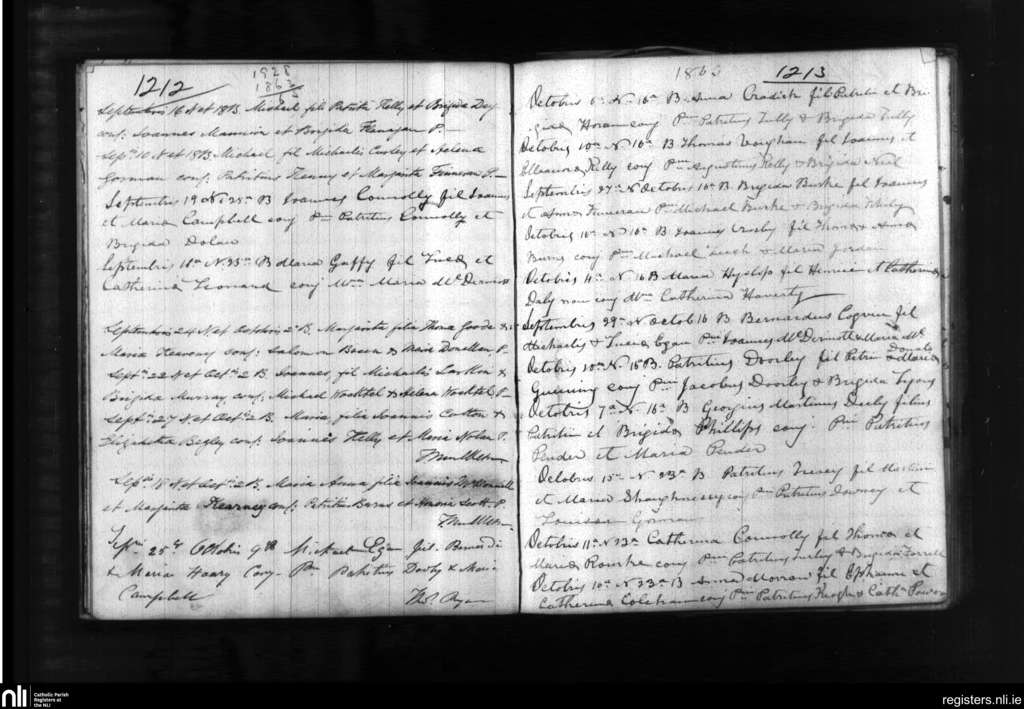 1212
1928
1863
Septembris 16 N et 18 B. Michael, fil Patritii Kelly et Brigida Day
conj: Joannes Mannion et Brigida Flanagan P.
Sept. 10 N et 18 B Michael, fil Michaelis Curley et Helena
Gorman conj: Patritius Kenny et Margarita Finneran P.
Septembris 19 N 25 B Joannes Connolly fil Joannes
et Maria Campbell conj Pm Patritius Connolly et
Brigida Dolan
Septembris 11 N B Maria Guffy fil et
Catherina Leonard conj Maria McDermott
Septembris 24 N et Octobris 2 B. Margarita filia Thoma Goode &
Maria Heavney conj: Salomon Bacon & Maria Donellan P.
Sept. 22 N et Oct. 2 B. Joannes, fil Michaelis &
Brigida Murray conj. Michael & Helena P.
Sept. 27 N et Oct. 2 B. Maria filia Joannis &
Elizabetha Begley conj: Joannes Kelly et Maria Nolan P.
Sept. 18 N et Oct. 2 B. Maria Anna filia Joannis
et Margarita Kearney conj: Patritius Burns et Maria Scott P.
25 Octobris 9 Michael Egan fil. Bernardi
& Maria Conj. Pm Patritius & Maria
Campbell Thos. Ryan
1863 1213
Octobris 6 N. 16 B. Anna fil Patritii et Bri-
gida Horan conj Pm Patritius Tully & Brigida Tully
Octobris 10 N 16 B Thomas Vaughan fil Joannes et
Elleanora Kelly conj Pm Augustinus Kelly & Brigida
Septembris 27 N Octobris 16 B Brigida Burke fil Joannes
et Anna Finneran Pm Michael Burke & Brigida
Octobris N 16 B Joannes Crosby fil Thoma & Anna
Burns conj Pm Michael & Maria Jordan
Octobris 11 N 16 B Maria Hyslop fil Henrici et Catherina
Daly non conj Catherina Haverty
Septembris 29 N Octob 16 B Bernardus Cogavin fil
Michaelis & Egan Joannes McDermott & Maria Mc
Donald
Octobris 10 N. 16 B. Patritius Doorley fil Petri & Maria
conj Pm Jacobus Doorley & Brigida Lyons
Octobris 7 N 16 B Georgius Martinus filius
Patritii et Brigida Phillips conj. Pm Patritius
Pender et Maria Pender
Octobris 15 N 23 B Patritius fil
et Maria Shaughnessy conj Pm Patritius Downey et
Gorman
Octobris 11 N 23 Catherina Connolly fil Thoma et
Maria Rourke conj Pm Patritius & Brigida Farrell
Octobris 10 N 23 B Anna Morran fil et
Catherina conj Pm Patritius Keogh & Cath Power
nli
Catholic Parish
Registers at
the NLI
registers.nli.ie